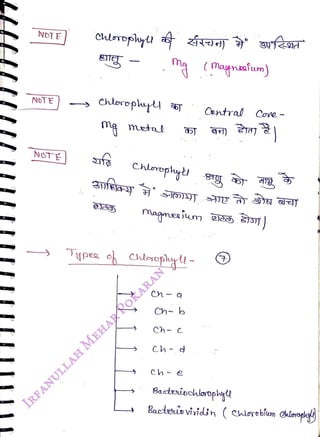 NOTE
Chlorophyll की संरचना में उपस्थित
धातु - Mg (Magnesium)
NOTE → Chlorophyll का Central Core -
Mg metal का बना होता है|
NOTE
यदि Chlorophyll अणु को वायु के
आधिक्य में जलाया जाए तो शेष बचा
घटक magnesium घटक होगा|
→ Types of Chlorophyll - (7)
→ Ch - a
→ Ch - b
→ Ch - c
→ Ch - d
→ Ch - e
→ Bacteriochlorophyll
→ Bacterioviridin (Chlorobium Chlorophyll)
IRFANULLAH MEHAR POKARAN